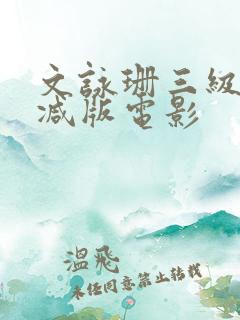 文詠珊三級
减版電影
溫飛
未任同意禁止转载